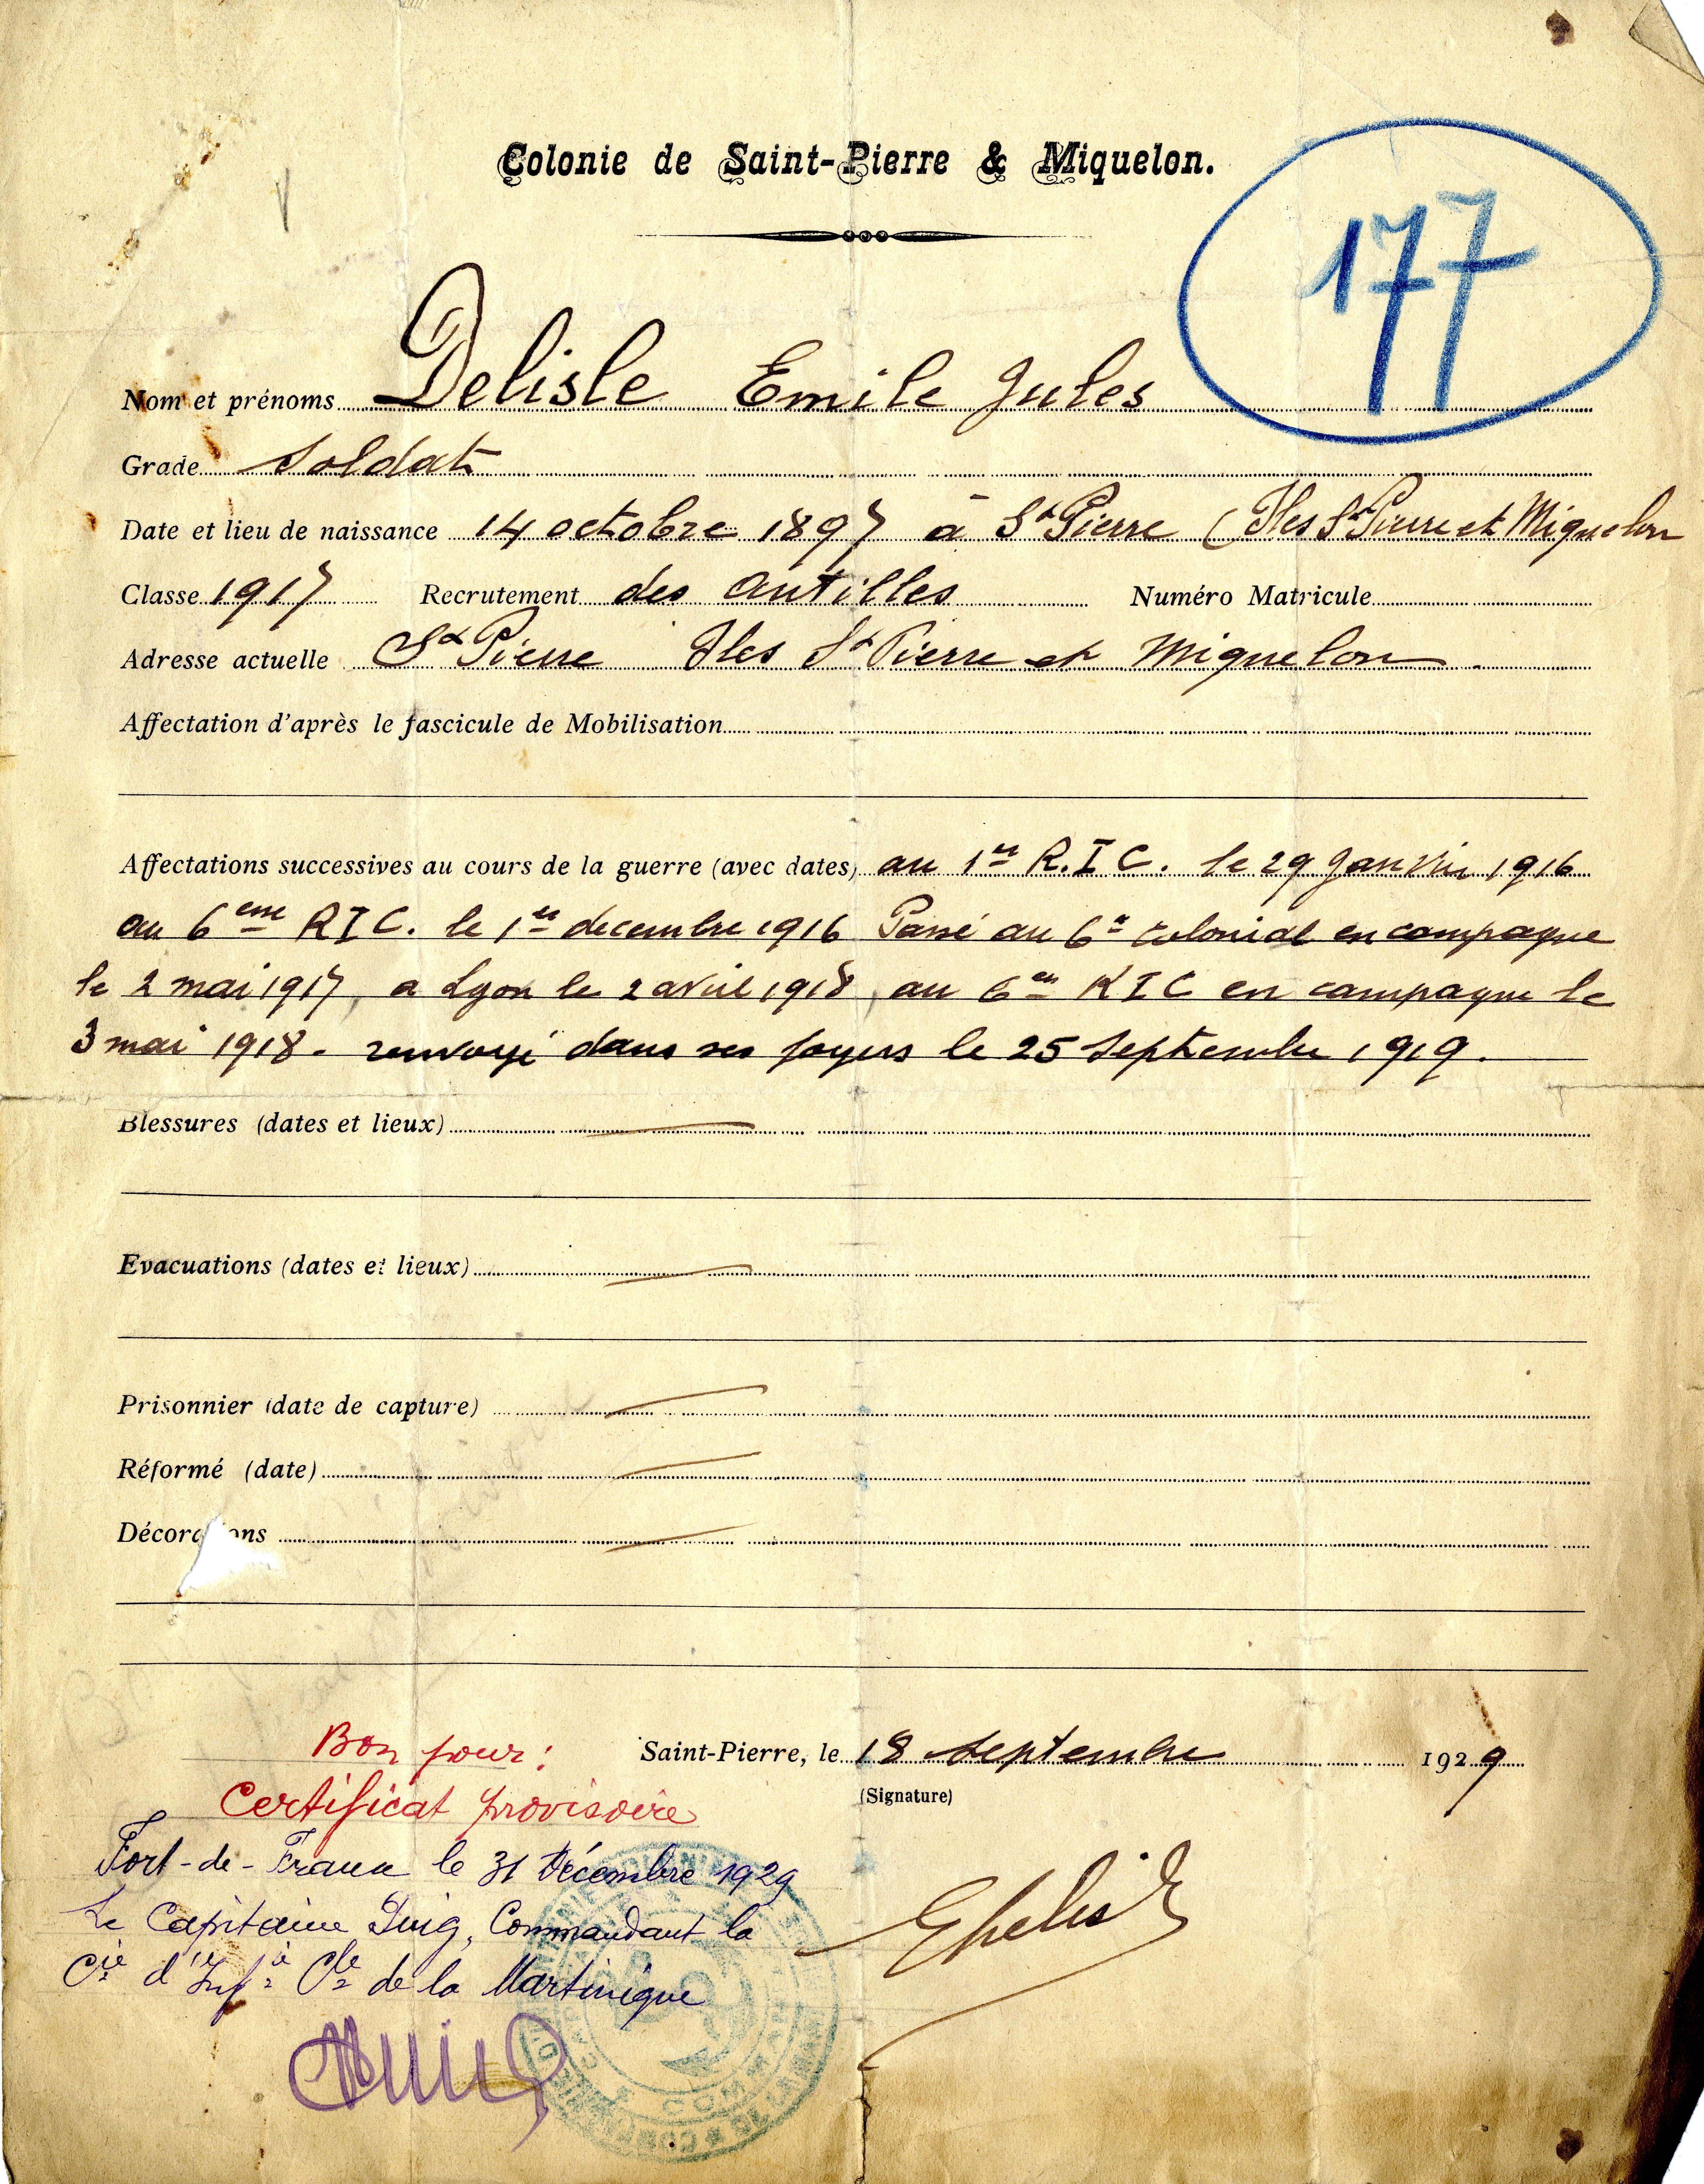 Colonie de Saint-Pierre & Miquelon.
177
Nom et prénoms Delisle Emile Jules
Grade Soldat
Date et lieu de naissance 14 octobre 1897 à St Pierre (Iles St Pierre et Miquelon
Classe 1917 Recrutement des Antilles Numéro Matricule
Adresse actuelle St Pierre Iles St Pierre et Miquelon
Affectation d'après le fascicule de Mobilisation
Affectations successives au cours de la guerre (avec dates) au 1er R.I.C. le 29 Janvier 1916
au 6eme RIC. le 1er decembre 1916 Passé au 6e colonial en campagne
le 2 mai 1917, a Lyon le 2 avril 1918, au 6em RIC en campagne le
3 mai 1918 - renvoyé dans ses foyers le 25 Septembre 1919.
Blessures (dates et lieux)
Evacuations (dates et lieux)
Prisonnier (date de capture)
Réformé (date)
Décorations
Bon pour :
Certificat provisoire
Saint-Pierre, le 18 Septembre 1929
(Signature)
Fort-de-France le 31 Décembre 1929
Le Capitaine Puig, Commandant la
Cie d'Infie Cle de la Martinique